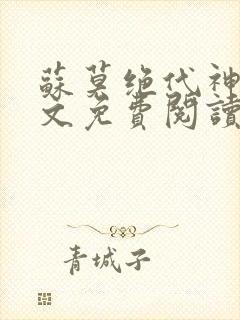 蘇莫绝代神
文免費閱讀
青城子